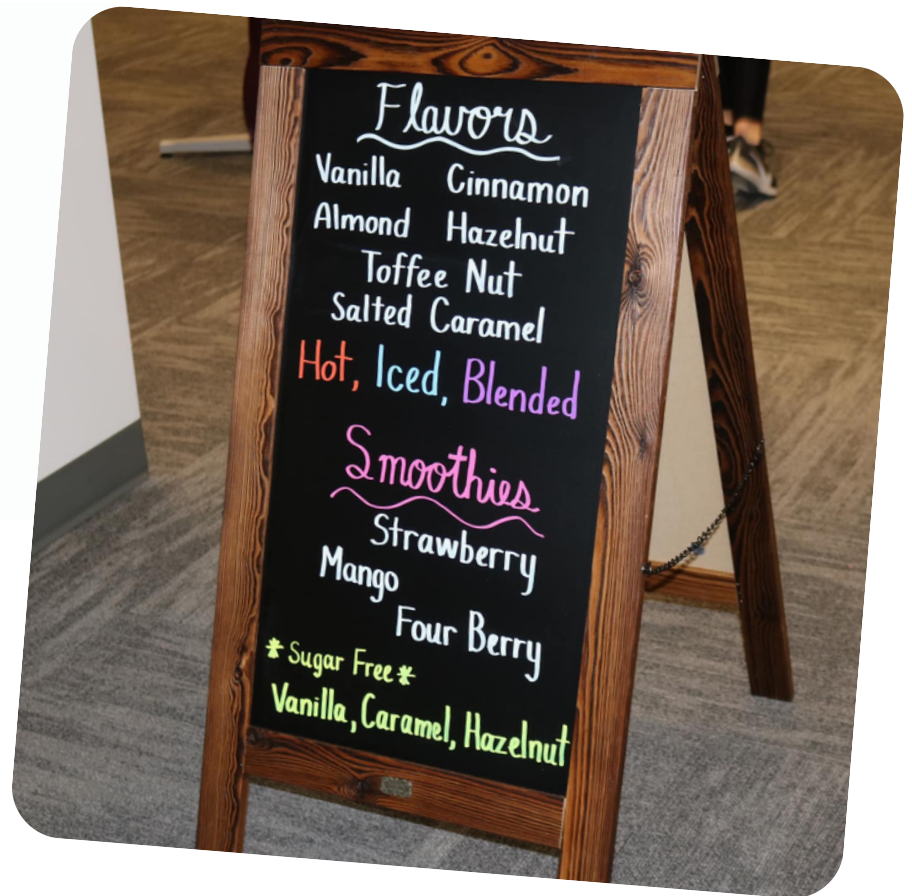 Flavors
Vanilla Cinnamon
Almond Hazelnut
Toffee Nut
Salted Caramel
Hot, Iced, Blended
Smoothies
Strawberry
Mango
Four Berry
*Sugar Free*
Vanilla, Caramel, Hazelnut